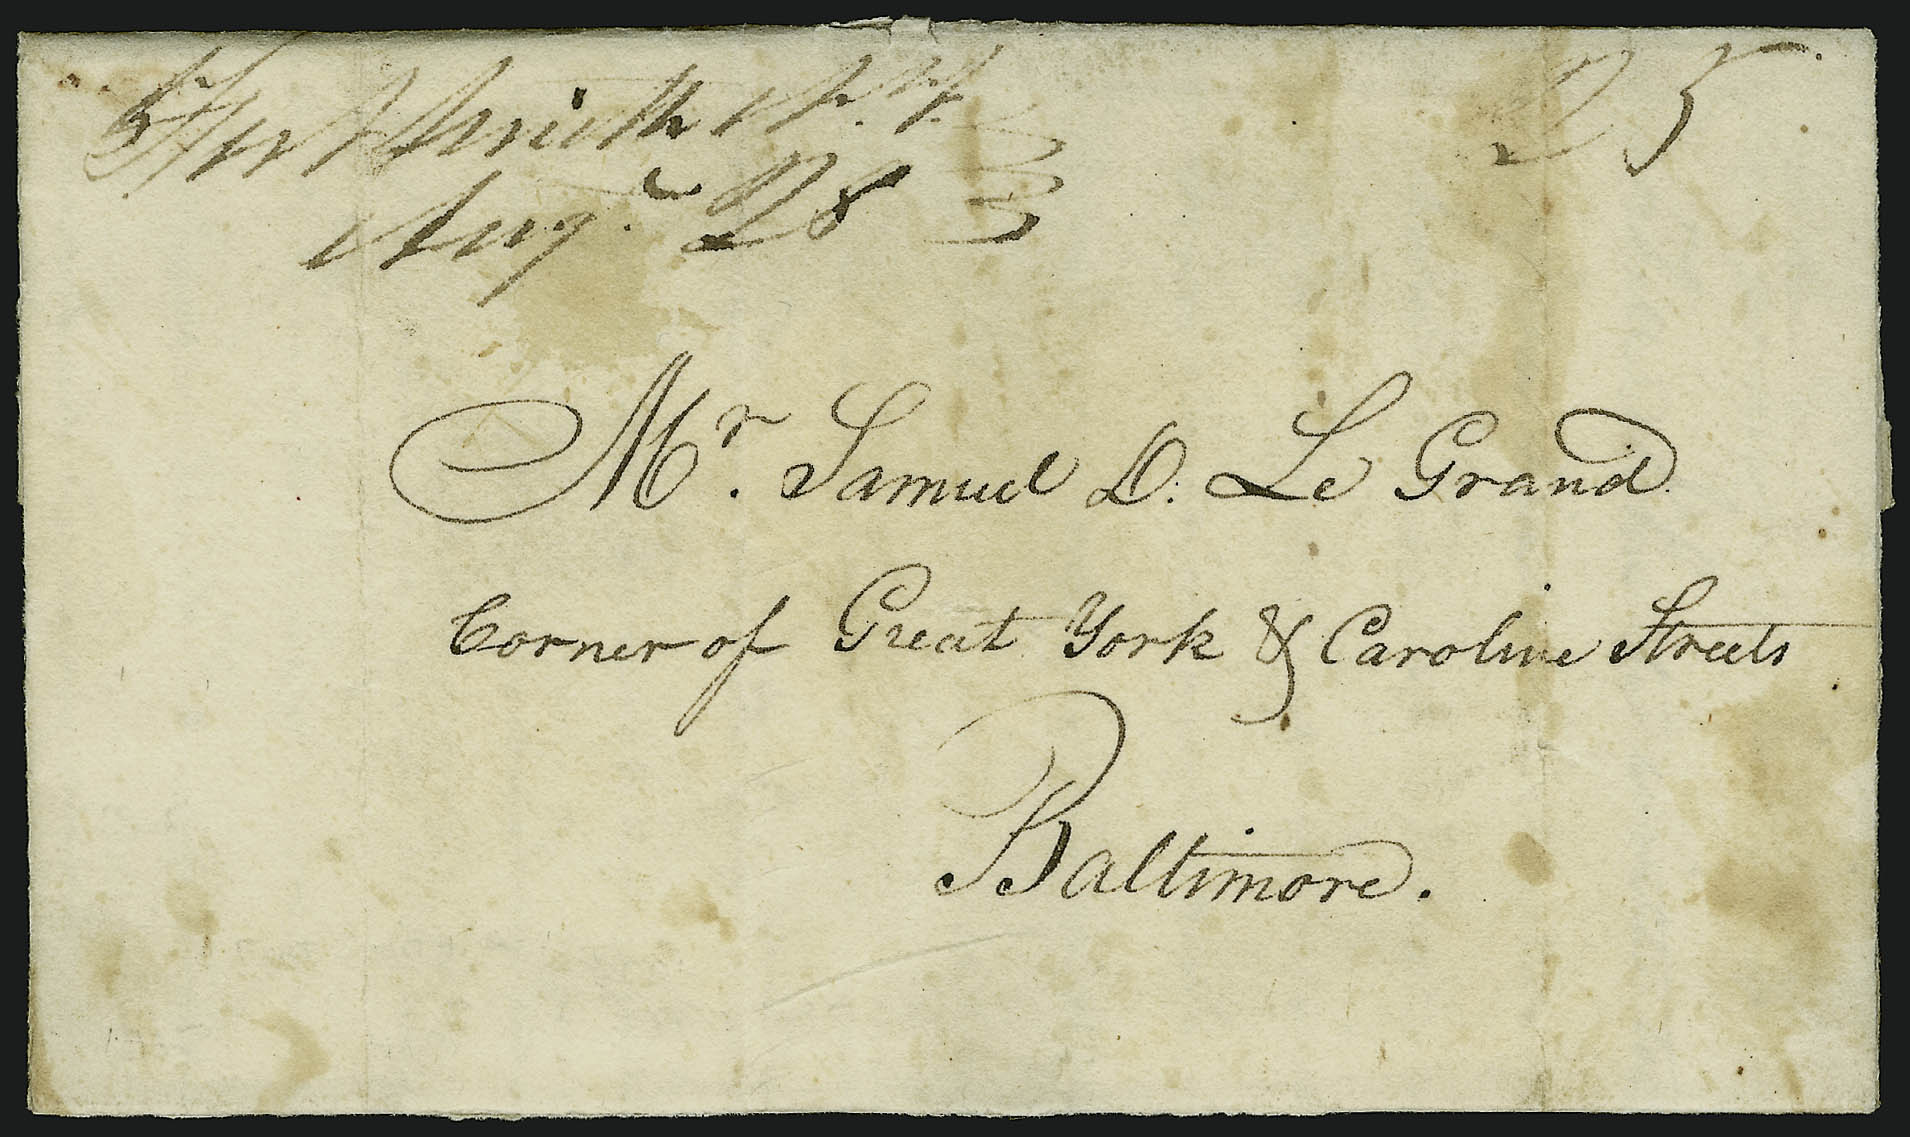 Fort Smith A.T.
25
Aug. 28
Mr. Samuel D. Le Grand
Corner of Great York & Caroline Streets
Baltimore.